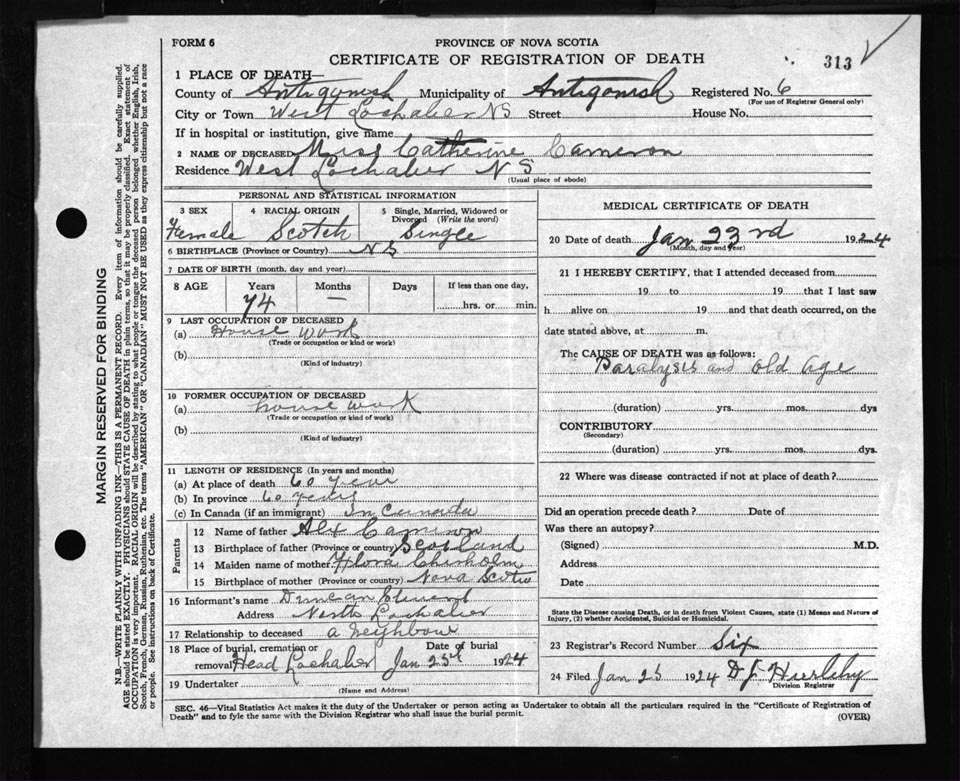 FORM 6
PROVINCE OF NOVA SCOTIA
CERTIFICATE OF REGISTRATION OF DEATH
313
1 PLACE OF DEATH—
County of Antigonish Municipality of Antigonish Registered No. 6
(For use of Registrar General only)
City or Town West Lochaber NS Street House No.
If in hospital or institution, give name
2 NAME OF DECEASED Miss Catherine Cameron
Residence West Lochaber N S
(Usual place of abode)
PERSONAL AND STATISTICAL INFORMATION
3 SEX Female
4 RACIAL ORIGIN Scotch
5 Single, Married, Widowed or Divorced (Write the word) Single
6 BIRTHPLACE (Province or Country) N S
7 DATE OF BIRTH (month, day and year)
8 AGE Years 74 Months — Days If less than one day, hrs. or min.
9 LAST OCCUPATION OF DECEASED
(a) House work
(Trade or occupation or kind or work)
(b)
(Kind of industry)
10 FORMER OCCUPATION OF DECEASED
(a) house work
(Trade or occupation or kind of work)
(b)
(Kind of industry)
11 LENGTH OF RESIDENCE (In years and months)
(a) At place of death 60 year
(b) In province 60 years
(c) In Canada (if an immigrant) In Canada
Parents
12 Name of father Alx Cameron
13 Birthplace of father (Province or country) Scotland
14 Maiden name of mother Flora Chisholm
15 Birthplace of mother (Province or country) Nova Scotia
16 Informant's name Duncan Stewart
Address North Lochaber
17 Relationship to deceased a Neighbour
18 Place of burial, cremation or removal Head Lochaber Date of burial Jan 25th 1924
19 Undertaker
(Name and Address)
MEDICAL CERTIFICATE OF DEATH
20 Date of death Jan 23rd 1924
(Month, day and year)
21 I HEREBY CERTIFY, that I attended deceased from
19 to 19 that I last saw
h alive on 19 and that death occurred, on the
date stated above, at m.
The CAUSE OF DEATH was as follows:
Paralysis and old age
(duration) yrs. mos. dys
CONTRIBUTORY
(Secondary)
(duration) yrs. mos. dys.
22 Where was disease contracted if not at place of death?
Did an operation precede death? Date of
Was there an autopsy?
(Signed) M.D.
Address
Date
State the Disease causing Death, or in death from Violent Causes, state (1) Means and Nature of
Injury, (2) whether Accidental, Suicidal or Homicidal.
23 Registrar's Record Number Six
24 Filed Jan 25 1924 D J Hurlehy
Division Registrar
SEC. 46—Vital Statistics Act makes it the duty of the Undertaker or person acting as Undertaker to obtain all the particulars required in the "Certificate of Registration of
Death" and to fyle the same with the Division Registrar who shall issue the burial permit.
(OVER)
MARGIN RESERVED FOR BINDING
N.B.—WRITE PLAINLY WITH UNFADING INK—THIS IS A PERMANENT RECORD. Every item of information should be carefully supplied.
AGE should be stated EXACTLY. PHYSICIANS should STATE CAUSE OF DEATH in plain terms, so that it may be properly classified. Exact statement of
OCCUPATION is very important. RACIAL ORIGIN will be described by stating to what people or tongue the deceased person belonged whether English, Irish,
Scotch, French, German, Russian, Ruthenian, etc. The terms "AMERICAN" or "CANADIAN" MUST NOT BE USED as they express citizenship but not a race
or people. See instructions on back of Certificate.